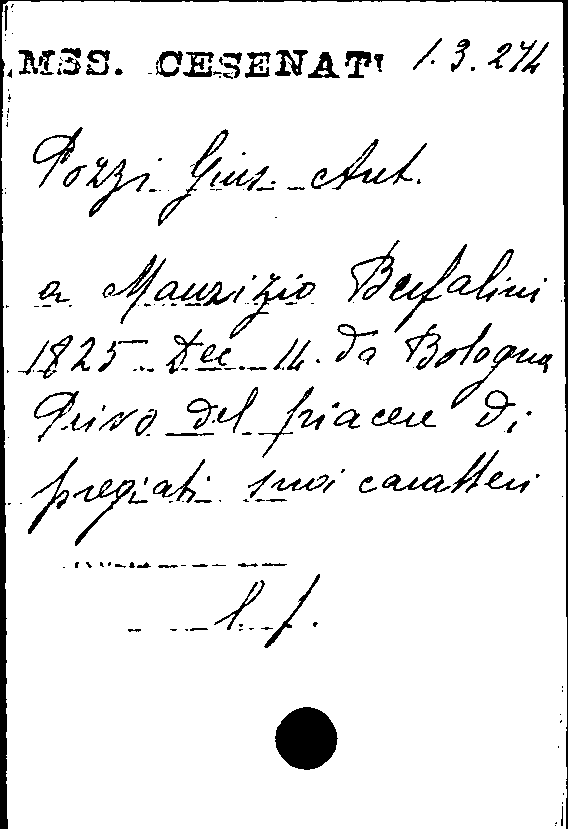 MSS. CESENATI 1.3.274
Pozzi Gius. Ant.
a Maurizio Bufalini
1825 Dec 14. da Bologna
Privo del piacere di
pregiati suoi caratteri
l. f.